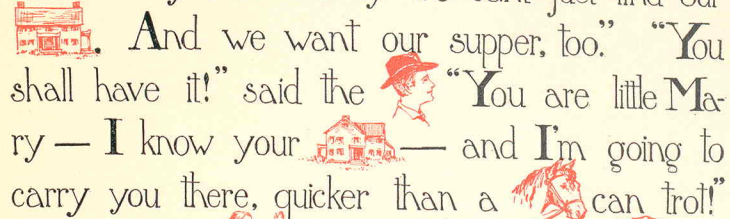 . And we want our supper, too." "You
shall have it!" said the "You are little Ma-
ry — I know your — and I'm going to
carry you there, quicker than a can trot!"